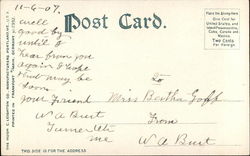 11-6-07.
Post Card.
Place the Stamp Here
One Cent for
United States
and
Island Possessions,
Cuba, Canada and
Mexico.
Two Cents
For Foreign
well
good by
until I
hear from you
again I hope
that may be
soon
your Friend
W A Burt
Turner
me
To
Miss Bertha Goff
From
W A Burt
THIS SIDE IS FOR THE ADDRESS